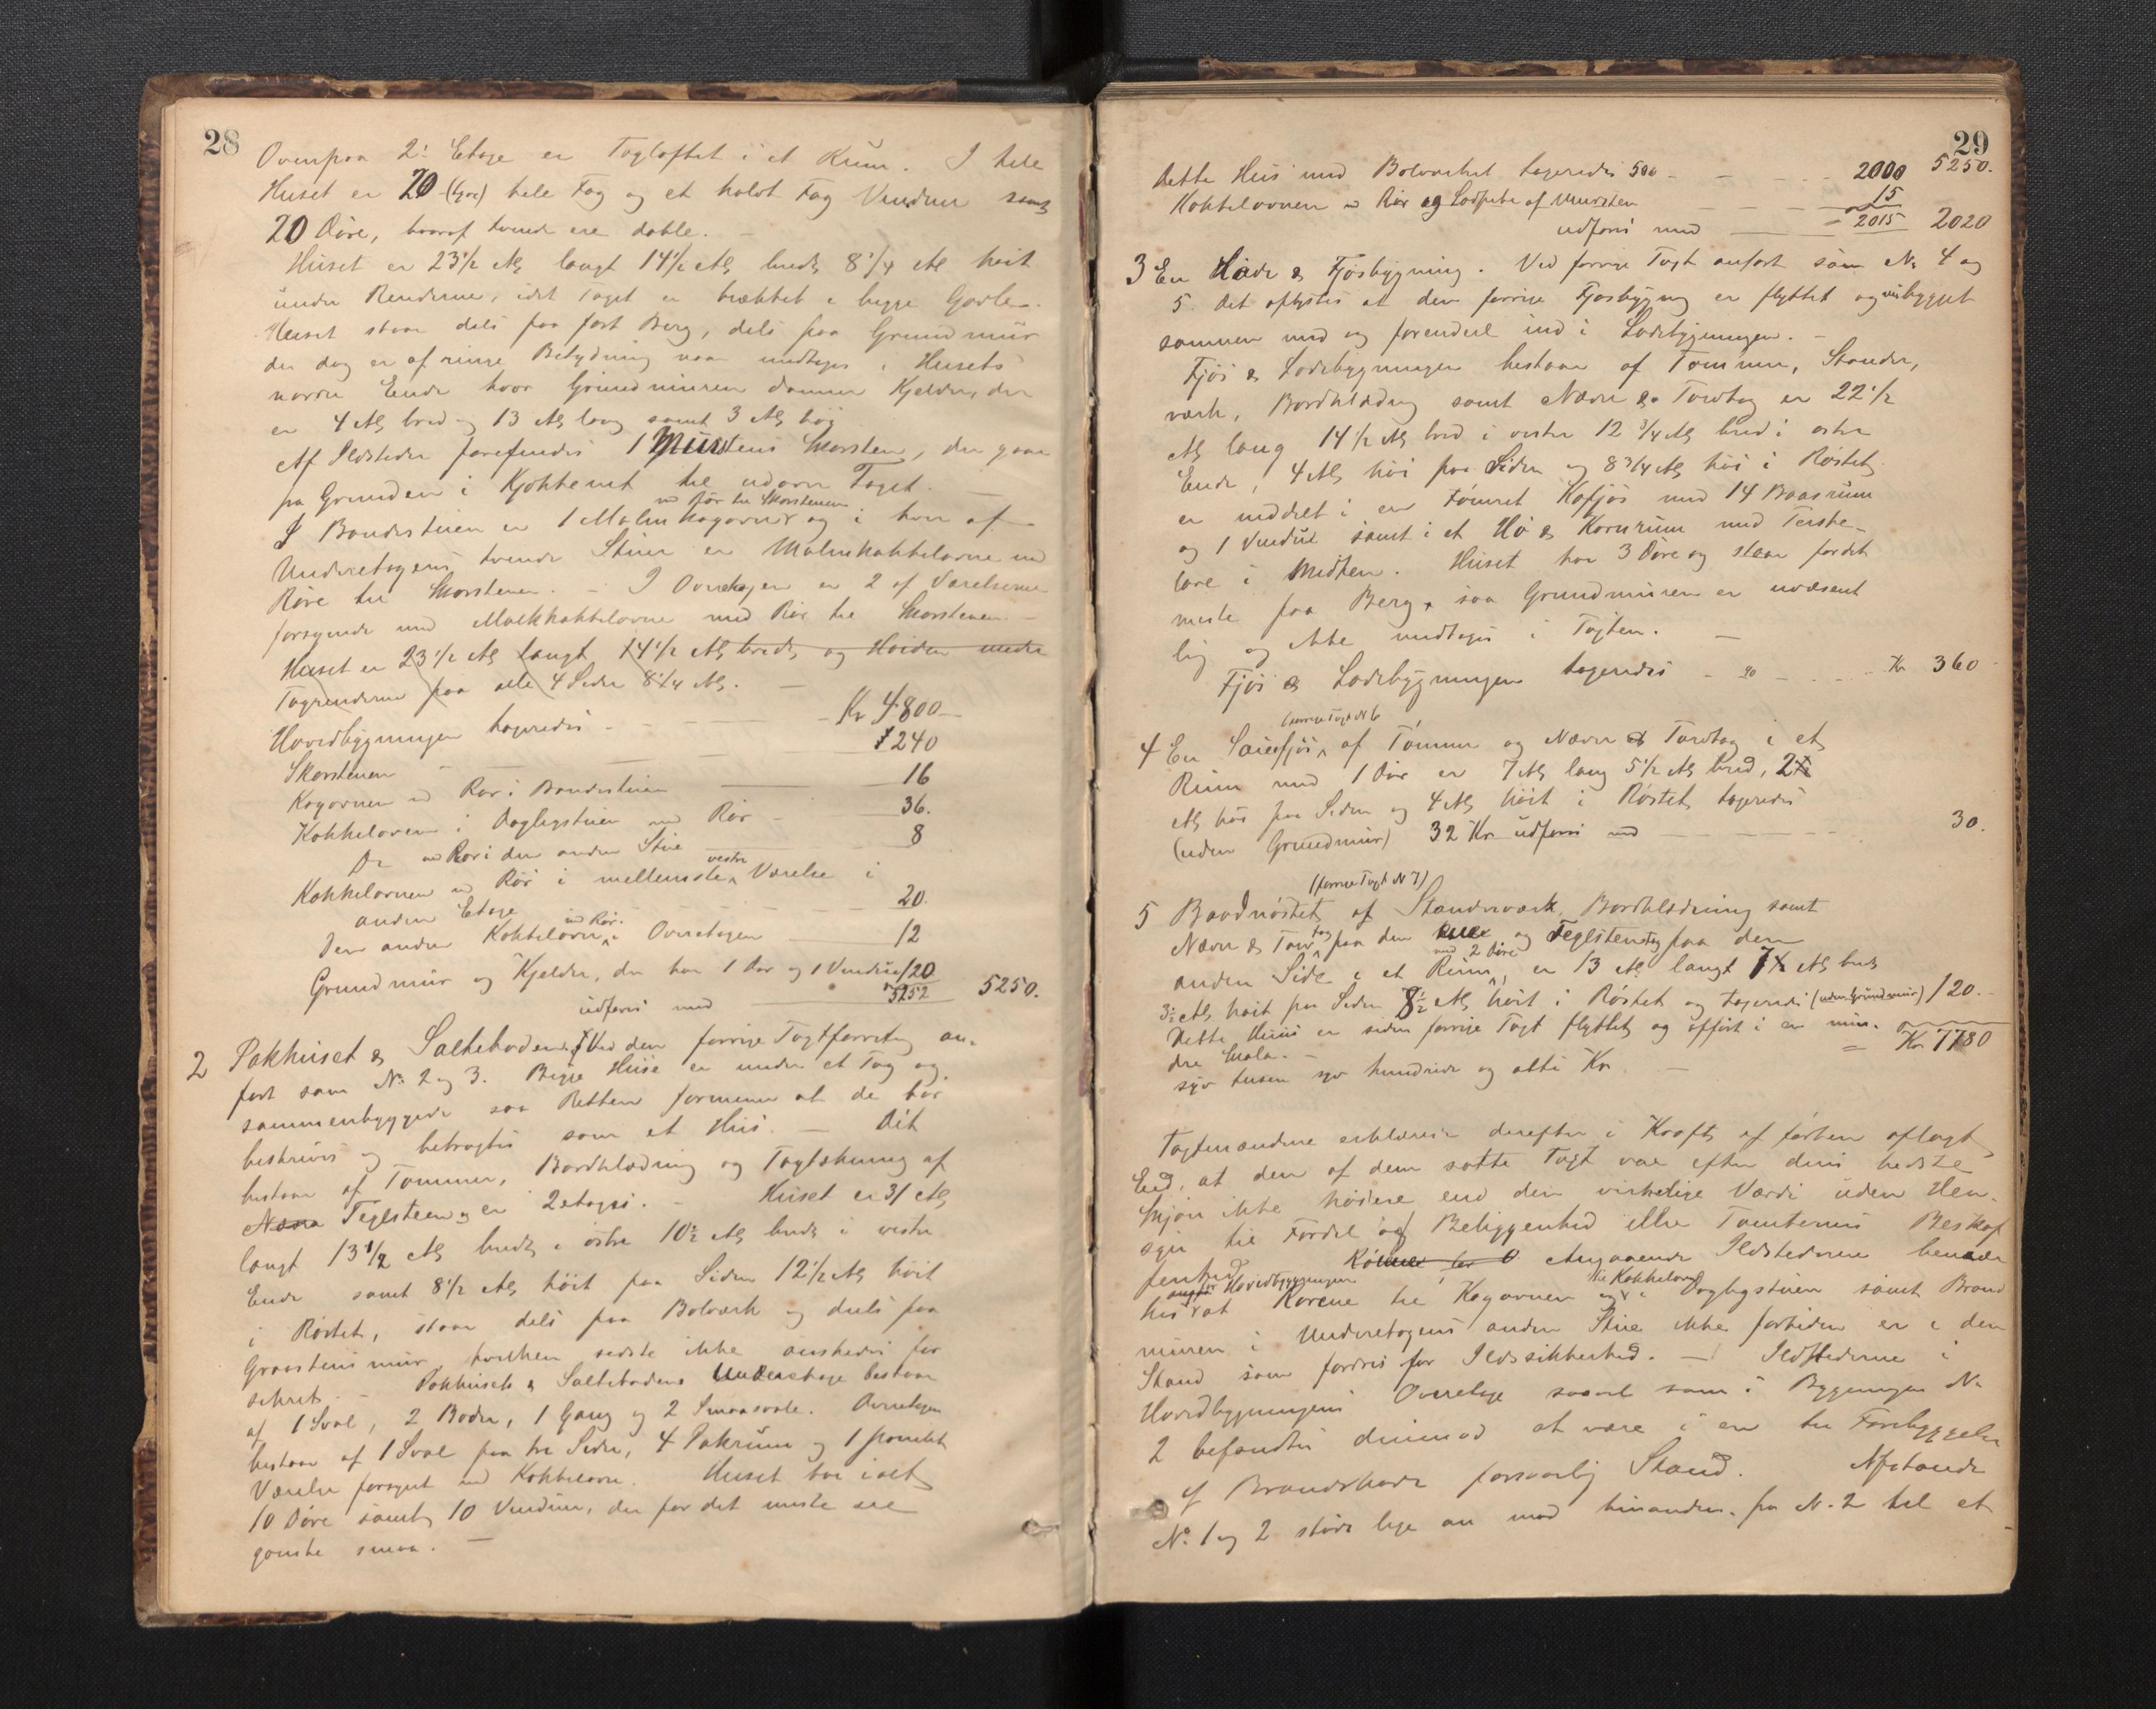 28
Ovenpaa 2: Etage er Tagloftet i et Rum. I hele
Huset er 20 (tyve) hele Fag og et halvt Fag Vinduer samt
20 Døre, hvoraf tvende ere doble. —
Huset er 23 1/2 Al. langt 14 1/2 Al. bredt, 8 1/4 Al høit
under Renderne, idet Taget er brækket i begge Gavle.
Huset staar dels paa fast Berg, dels paa Grundmur
der dog er af ringe Betydning naar undtages i Husets
nordre Ende hvor Grundmuren danner Kjelder, der
er 4 Al, bred og 13 Al, lang samt 3 Al, høi
Af Ildsteder forefindes 1 Murstens Skorsten, der gaar
fra Grunden i Kjøkkenet til udover Taget. —
I Bondestuen er 1 Malm Kogovn m Rør til Skorstenen og i hver af
Underetagens tvende Stuer er Malmkakkelovne m
Røre til Skorstenen. — I Overetagen er 2 af Værelserne
forsynede med Malmkakkelovne med Rør til Skorstenen. —
Huset er 23 1/2 Al, langt 14 1/2 Al, bredt, og Høiden under
Tagrenderne paa alle 4 Sider 8 1/4 Al. —
Hovedbygningen taxeredes - - - - Kr 4800 —
Skorstenen - — — 240
Kogovnen m Rør i Bondestuen — 16
Kakkelovnen i Dagligstuen med Rør - 36.
Do m Rør i den anden Stue — 8
Kakkelovnen m Rør i mellemste vestre Værelse i
anden Etage - - - 20.
Den anden Kakkelovn m Rør i Overetagen — 12
Grundmur og Kjelder, der har 1 Dør og 1 Vindue 120
udføres med — 5252 5250.
2 Pakhuset & Salteboden. Ved den forrige Taxtforretng an-
ført som No 2 og 3. Begge Huse er under et Tag og
sammenbyggede saa Retten formener at de bør
beskrives og betragtes som et Hus. — Det
bestaar af Tømmer, Bordklædning og Tagtækning af
Næver Teglsteen og er 2 etages. - Huset er 31 Al,
langt 13 1/2 Al, bredt, i østre 10 1/2 Al, bredt i vestre
Ende samt 8 1/2 Al, høit paa Siden 12 1/2 Al, høit
i Røstet, staar dels paa Bolværk og dels paa
Graastens mur hvilken sidste ikke ønskedes for
sikret. - Pakhusets & Saltebodens Underetage bestaar
af 1 Sval, 2 Boder, 1 Gang og 2 Smaasvale. Overetagen
bestaar af 1 Sval paa tre Sider, 4 Pakrum og 1 panelet
Værelse forsynet med Kakkelovn. Huset har ialt
10 Døre samt 10 Vinduer, der for det meste ere
ganske smaa. —
29
Dette Hus med Bolværket taxeredes 500 - - - 2000 5250.
Kakkelovnen m Rør og Lodpibe af Mursten — 15
udføres med — = 2015 2020
3 En Løde & Fjøsbygning. Ved forrige Taxt anført som No 4 og
5. Det oplystes at den forrige Fjøsbygning er flyttet og ombygget
sammen med og forenet ind i Lødebygningen. —
Fjøs & Lødebygningen bestaar af Tømmer, Stander,
værk, Bordklædng samt Næver & Torvtag er 22 1/2
Al, lang 14 1/2 Al, bred i vestre 12 3/4 Al, bred i østre
Ende, 4 Al, høi paa Siden og 8 3/4 Al, høi i Røstet,
er inddelt i en tømret Kofjøs med 14 Baasrum
og 1 Vindue samt i et Hø & Kornrum med Terske-
lave i Midten. Huset har 3 Døre og staar fordet
meste paa Berg, saa Grundmuren er uvæsent
lig og ikke medtages i Taxten. —
Fjøs & Lødebygningen taxeredes - - - - Kr 360
4 En Sauefjøs (forrige Taxt No 6 af Tømmer og Næver & Torvtag i et
Rum med 1 Dør er 7 Al, lang 5 1/2 Al, bred, 2
Al, høi paa Siden og 4 Al, høit i Røstet, taxeredes
(uden Grundmur) 32 Kr udføres med — 30.
5 Baadnøstet (forrige Taxt No 7) af Standerværk, Bordklædning samt
Næver & Torvtag paa den ene og Teglstenstag paa den
anden Side i et Rum med 2 Døre, er 13 Al. langt 7 Al, bredt
3 1/2 Al, høit paa Siden 8 1/2 Al, høit i Røstet og taxeredes (uden Grundmur) 120. —
Dette Huus er siden forrige Taxt flyttet, og opført i en min-
dre Skala. — = Kr 7780
syv tusen syv hundrede og otti Kr —
Taxtmændene erklærede derefter i Kraft, af førhen aflagt
Eed, at den af dem satte Taxt var efter deres bedste
Skjøn ikke høiere end den virkelige Værdi uden Hen-
syn til Fordel af Beliggenhed eller Tomternes Beskaf
fenhed. Angaaende Ildstederne bemær
kes for Hovedbygningen at Rørene til Kogovnen og til Kakkelovnen i Dagligstuen samt Brand
muren i Underetagens anden Stue ikke fortiden er i den
Stand som fordres for Ildssikkerhed. — Ildstederne i
Hovedbygningens Overetage saavel som i Bygningen No
2 befandtes derimod at være i en til Forebyggelse
af Brandskade forsvarlig Stand. Afstande
No. 1 og 2 støde lige an mod hinanden. fra No. 2 til et